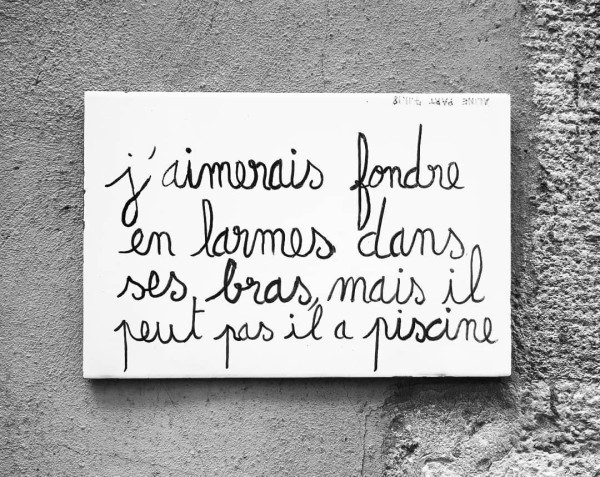 j'aimerais fondre
en larmes dans
ses bras, mais il
peut pas il a piscine